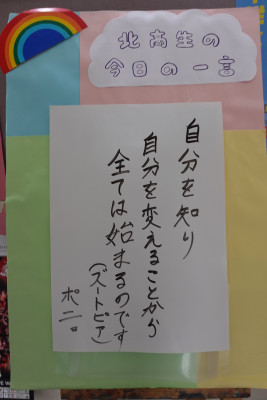 北高生の
今日の一言
自分を知り
自分を変えることから
全ては始まるのです
(ズートピア)
ポニョ